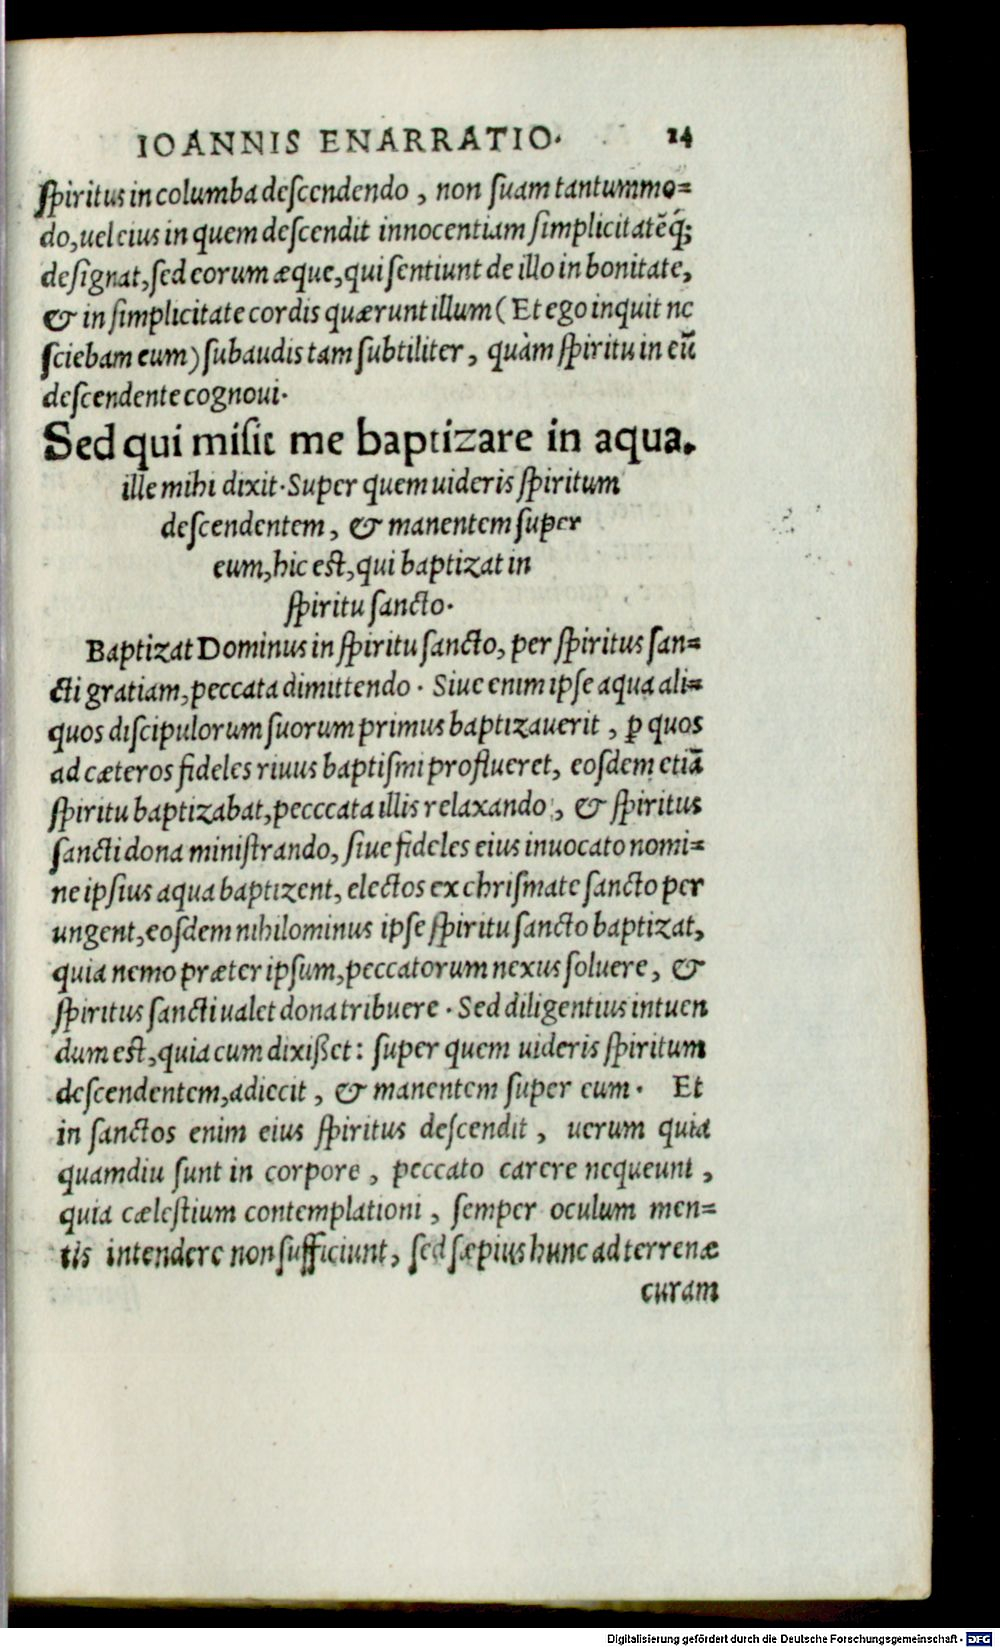 IOANNIS ENARRATIO. 14
ſpiritus in columba deſcendendo, non ſuam tantummo=
do, uel eius in quem deſcendit innocentiam ſimplicitatẽq́;
deſignat, ſed eorum æque, qui ſentiunt de illo in bonitate,
& in ſimplicitate cordis quærunt illum (Et ego inquit ne
ſciebam eum) ſubaudis tam ſubtiliter, quàm ſpiritu in eũ
deſcendente cognoui.
Sed qui miſit me baptizare in aqua.
ille mihi dixit. Super quem uideris ſpiritum
deſcendentem, & manentem ſuper
eum, hic eſt, qui baptizat in
ſpiritu ſancto.
Baptizat Dominus in ſpiritu ſancto, per ſpiritus ſan=
cti gratiam, peccata dimittendo. Siue enim ipſe aqua ali=
quos diſcipulorum ſuorum primus baptizauerit, ꝑ quos
ad cæteros fideles riuus baptiſmi proflueret, eoſdem etiã
ſpiritu baptizabat, pecccata illis relaxando, & ſpiritus
ſancti dona miniſtrando, ſiue fideles eius inuocato nomi=
ne ipſius aqua baptizent, electos ex chriſmate ſancto per
ungent, eoſdem nihilominus ipſe ſpiritu ſancto baptizat,
quia nemo præter ipſum, peccatorum nexus ſoluere, &
ſpiritus ſancti ualet dona tribuere. Sed diligentius intuen
dum eſt, quia cum dixißet: ſuper quem uideris ſpiritum
deſcendentem, adiecit, & manentem ſuper eum. Et
in ſanctos enim eius ſpiritus deſcendit, uerum quia
quamdiu ſunt in corpore, peccato carere nequeunt,
quia cæleſtium contemplationi, ſemper oculum men=
tis intendere non ſufficiunt, ſed ſæpius hunc ad terrenæ
curam
Digitalisierung gefördert durch die Deutsche Forschungsgemeinschaft - DFG